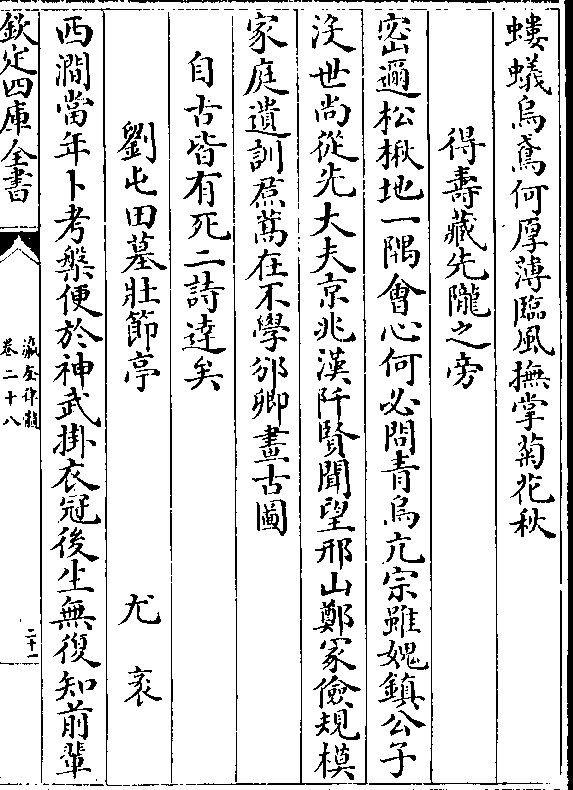 螻蟻烏鳶何厚薄臨風撫掌菊花秋
得壽藏先隴之旁
密邇松楸地一隅會心何必問青烏亢宗雖媿鎮公子
沒世尚從先大夫京兆漢阡賢聞望邢山鄭冢儉規模
家庭遺訓焄蒿在不學邠卿畫古圖
自古皆有死二詩達矣
劉屯田墓壯節亭 尤袤
西澗當年卜考槃便於神武掛衣冠後生無復知前輩
欽定四庫全書
瀛奎律髓
卷二十八
二十一